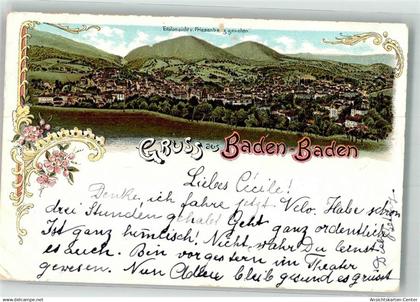 Gruss aus Baden-Baden
Liebes Cécile!
Denke, ich fahre jetzt Velo. Habe schon
drei Stunden gehabt. Geht ganz ordentlich
Ist ganz himmlisch! Nicht wahr Du lernst
es auch. Bin vorgestern im Theater
gewesen. Nun Adieu bleib gesund es grüsst
Dich
www.Ansichtskarten-Center.de